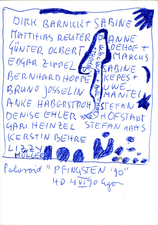 DIRK BARNICKT + SABINE
MATTHIAS REUTER ANNE
GÜNTER OLBERT DEHOF +
EDGAR ZIPPEL MARKUS
BERNHARD HOPPE SABINE
BRUNO JOSSELIN KEPES +
ANKE HABERSTROH UWE MANTEL
DENISE EHLER STEFAN HOFSTADT
GABI HEINZEL STEFAN HAAS
KERSTIN BEHRE
LIZZY
MÜLLER
Polaroid "PFINGSTEN '90"
4D 4 VI 90